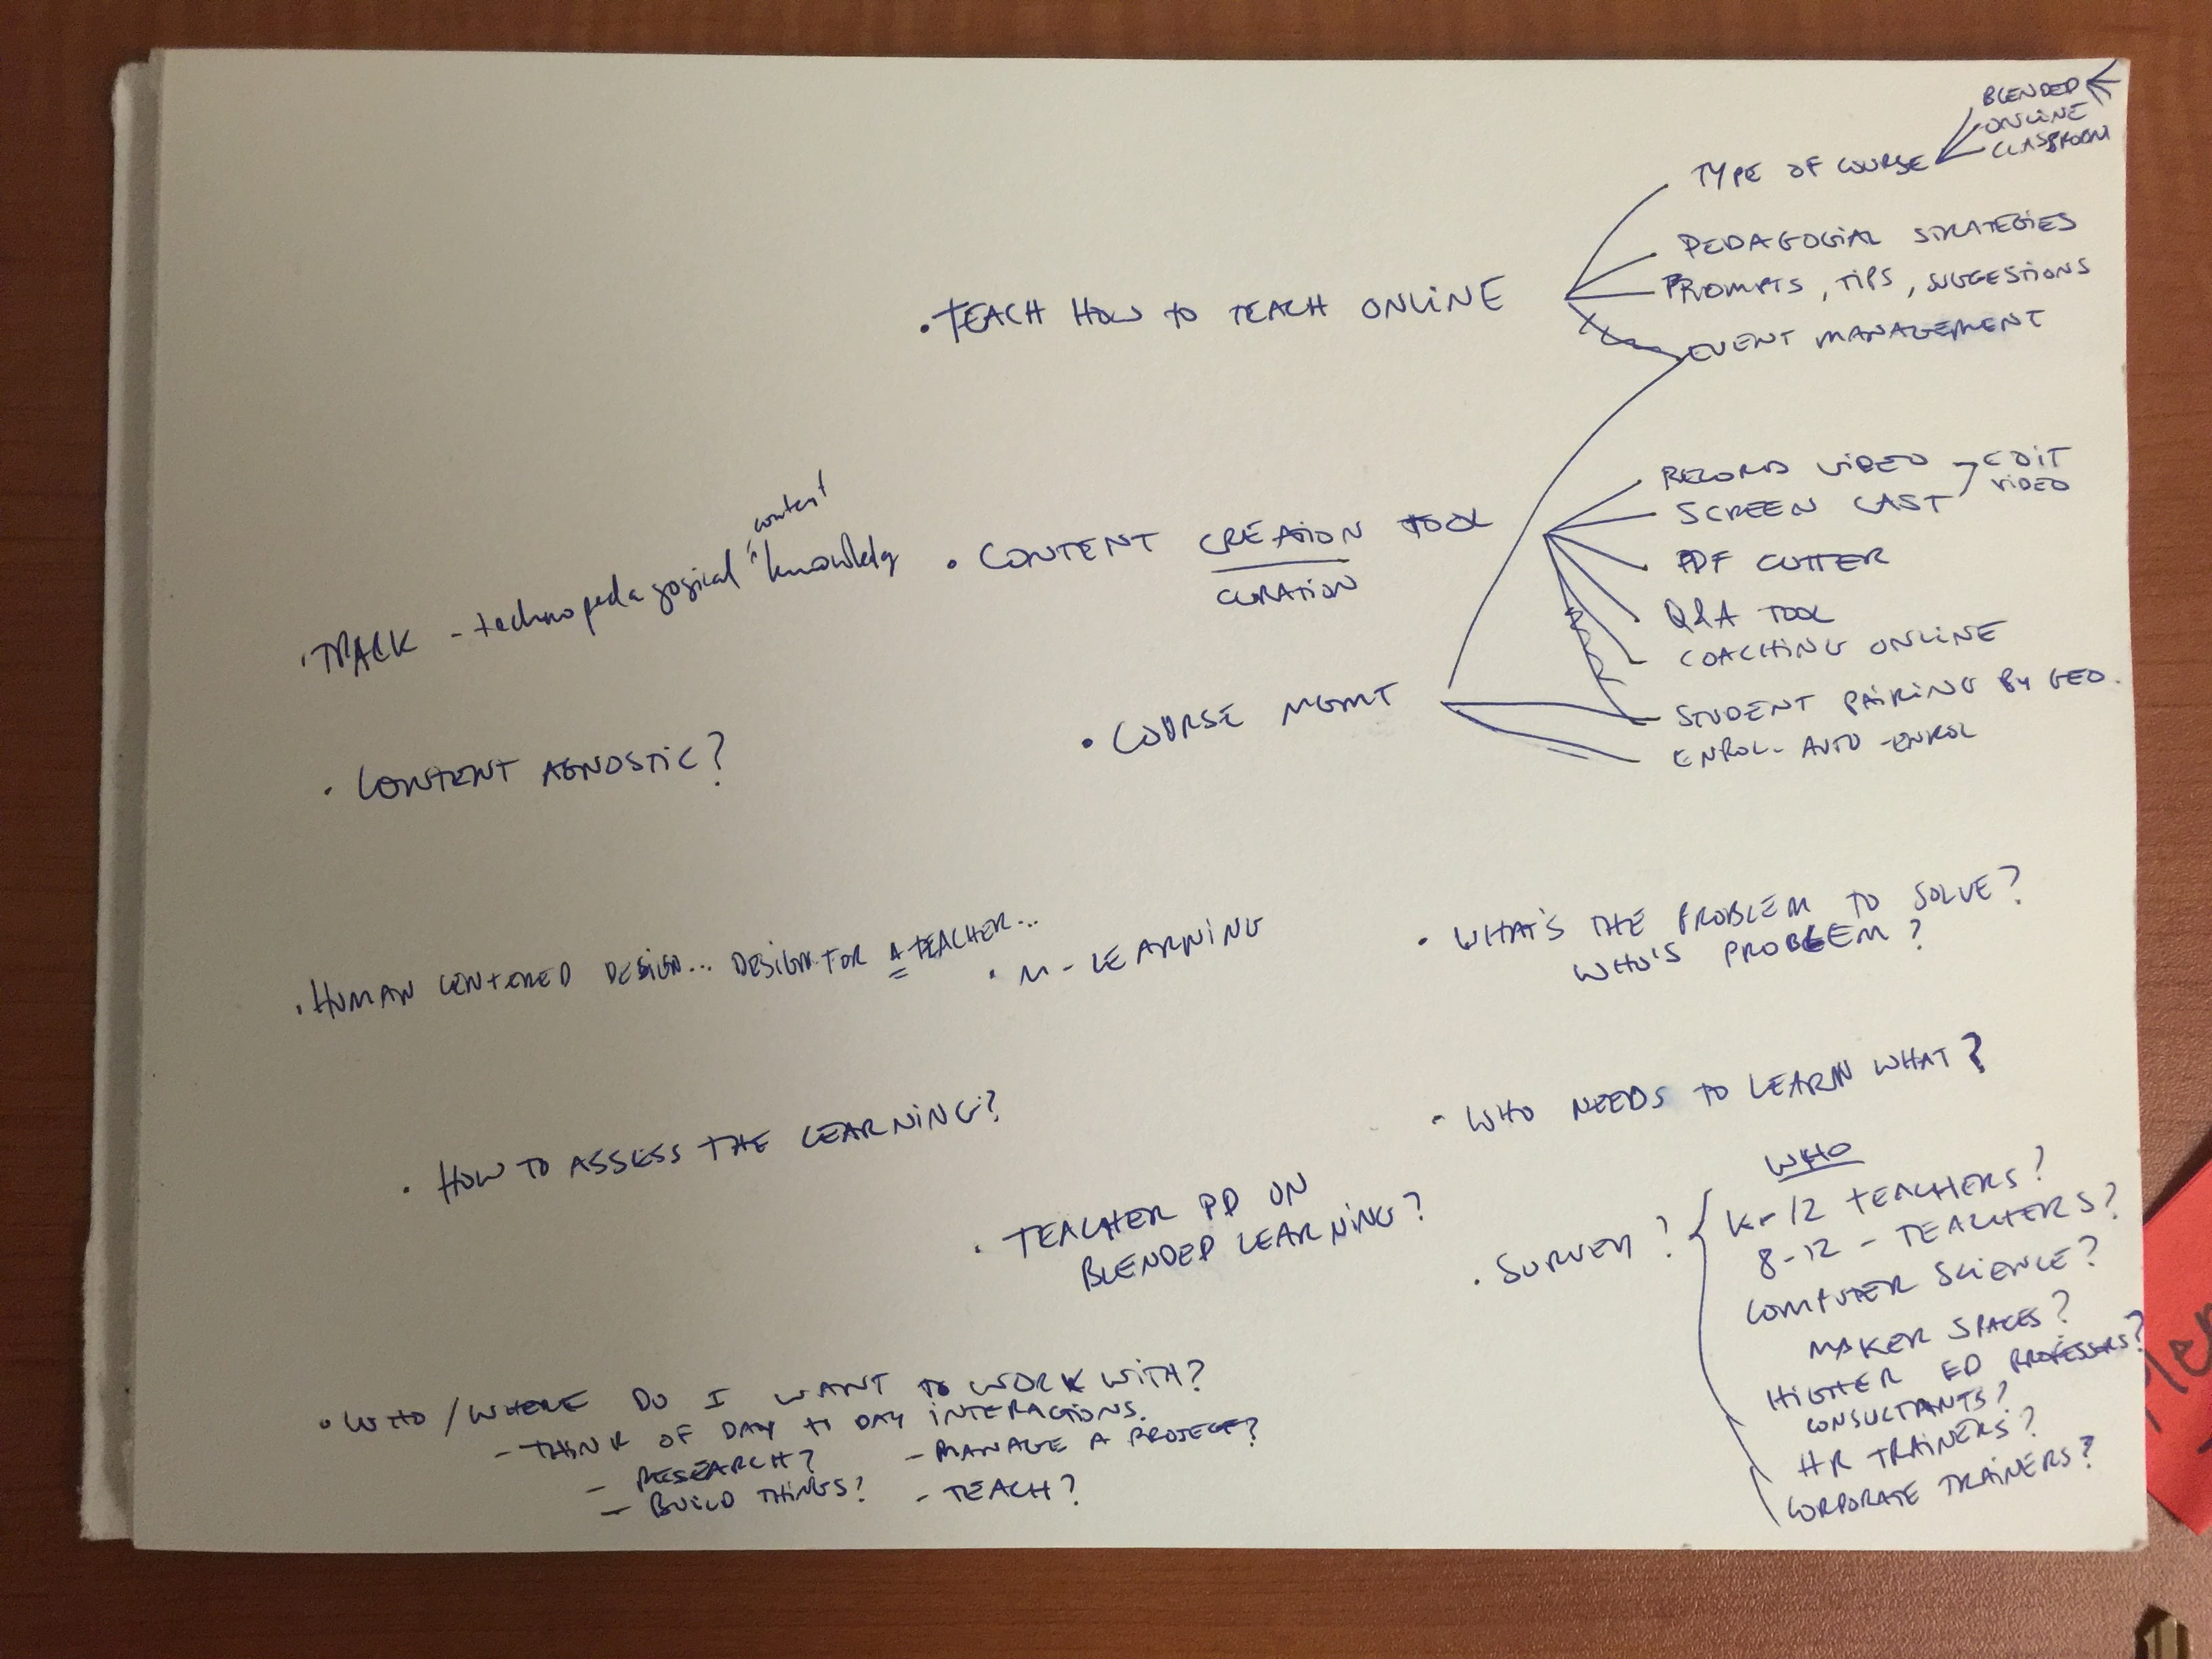 BLENDED
ONLINE
CLASSROOM
TYPE OF COURSE
PEDAGOGIAL STRATEGIES
PROMPTS, TIPS, SUGGESTIONS
EVENT MANAGEMENT
• TEACH HOW TO TEACH ONLINE
RECORD VIDEO
EDIT
VIDEO
SCREEN CAST
PDF CUTTER
Q&A TOOL
COACHING ONLINE
STUDENT PAIRING BY GEO.
ENROL - AUTO - ENROL
• CONTENT CREATION TOOL
CURATION
content
• TPACK - technopedagogical knowledg
• COURSE MGMT
• CONTENT AGNOSTIC?
• HUMAN CENTERED DESIGN... DESIGN FOR A TEACHER...
• M-LEARNING
• WHAT'S THE PROBLEM TO SOLVE?
WHO'S PROBLEM?
• HOW TO ASSESS THE LEARNING?
- WHO NEEDS TO LEARN WHAT?
• TEACHER PD ON
BLENDED LEARNING?
• SURVEY?
WHO
K-12 TEACHERS?
8-12 - TEACHERS?
COMPUTER SCIENCE?
MAKER SPACES?
HIGHER ED PROFESSERS?
CONSULTANTS?
HR TRAINERS?
CORPORATE TRAINERS?
• WHO/WHERE DO I WANT TO WORK WITH?
- THINK OF DAY TO DAY INTERACTIONS.
- RESEARCH? - MANAGE A PROJECT?
- BUILD THINGS? - TEACH?